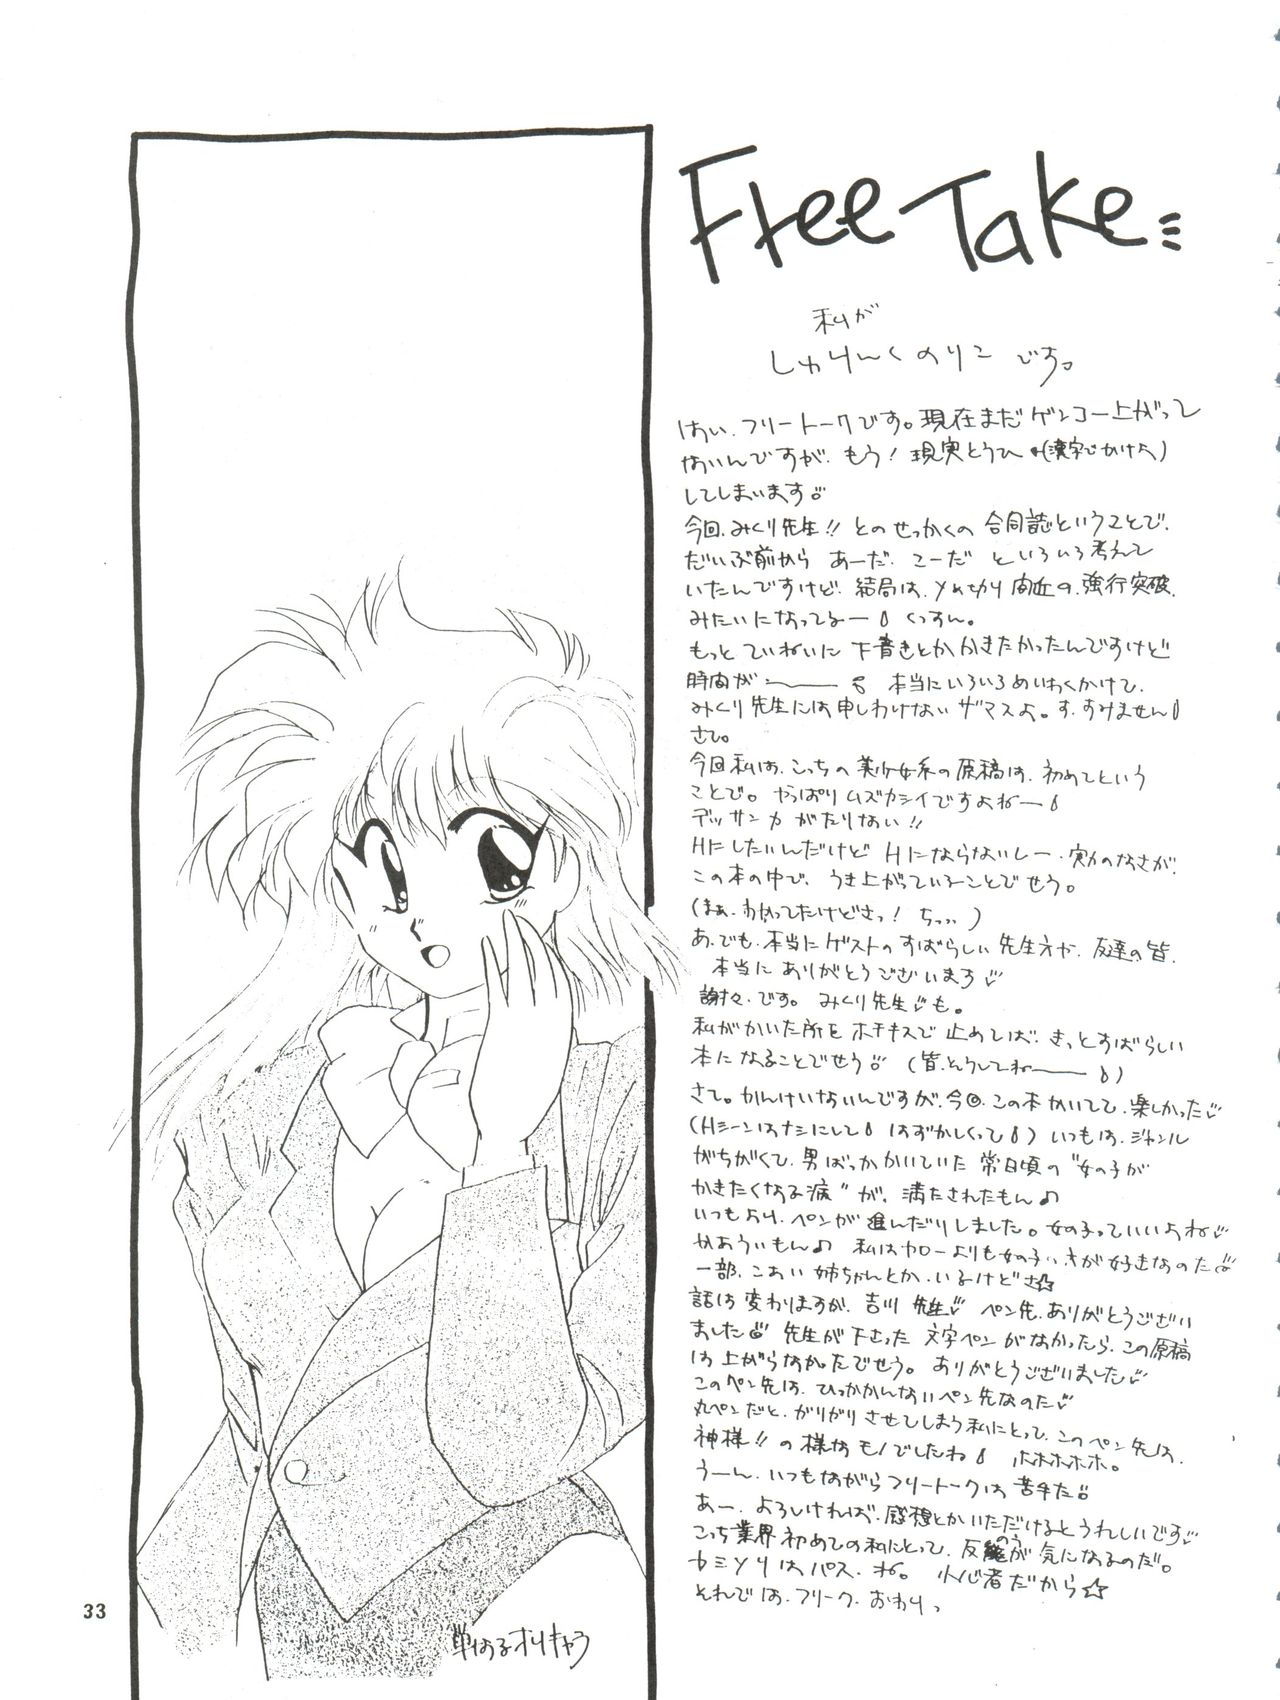 Free Take
私が
しゅりんくのりこ です。
はい、フリートークです。現在まだゲンコー上がって
ないんですが、もう! 現実とうひ (漢字でかけよ)
してしまいます
今回、みくり先生!! とのせっかくの 合同誌ということで、
だいぶ前から あーだ、こーだ といろいろ考えて
いたんですけど、結局は、〆め切り間近の、強行突破
みたいになってるー くっすん。
もっと ていねいに 下書きとかかきたかったんですけど
時間が―― 本当にいろいろめいわくかけて、
みくり先生には申しわけないザマスよ。す、すみません
さて。
今回私は、こっちの美少女系の原稿は、初めてという
ことで。やっぱりムズカシイですよねー
デッサン力がたりない!!
Hにしたいんだけど Hにならないしー、実力のなさが、
この本の中で、うき上がっていることでせう。
(まぁ、わかってたけどさっ! ちっ)
あ、でも、本当にゲストのすばらしい先生方や、友達の皆、
本当にありがとうございます
謝々、です。みくり先生も。
私がかいた所をホチキスで止めてしば、きっとすばらしい
本になることでせう (皆、そうしてねー)
さて。かんけいないんですが、今回、この本かいてて、楽しかった
(Hシーンはナシにして はずかしくって) いつもは、ジャンル
がちがくて、男ばっかかいていた 常日頃の"女の子が
かきたくなる病"が、満たされたもん♪
いつもより、ペンが進んだりしました。女の子っていいよね
かあういもん♪ 私はヤローよりも女の子、が好きなのだ
一部、こあい姉ちゃんとか、いるけどさ☆
話は変わりますが、吉川先生 ペン先、ありがとうござい
ました 先生が下さった 文字ペンがなかったら、この原稿
は上がらなかったでせう。ありがとうございました
このペン先は、ひっかかんないペン先なのだ
丸ペンだと、がりがりさせてしまう私にとって、このペン先は、
神様!! の様なモノでしたね ホホホホホ。
うーん、いつもながらフリートークは苦手だ
あー、よろしければ、感想とかいただけるとうれしいです
こっち業界初めての私にとって、反能のうが気になるのだ。
カミソリはパス、ね。小心者だから☆
それでは、フリーク、おわりっ
単なるオリキャラ
33